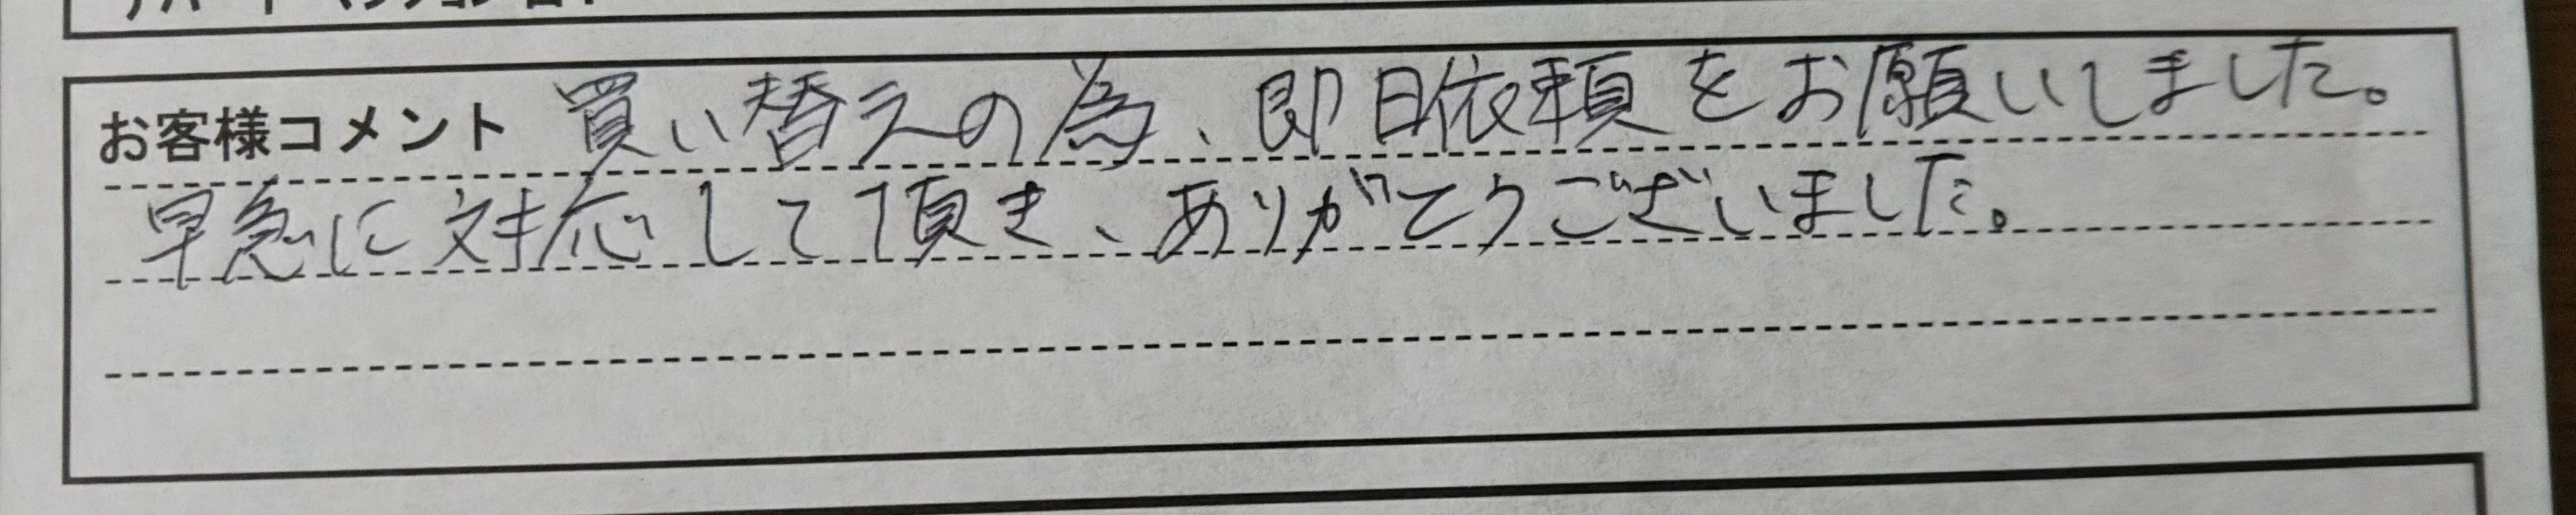 お客様コメント 買い替えの為、即日依頼をお願いしました。
早急に対応して頂き、ありがとうございました。